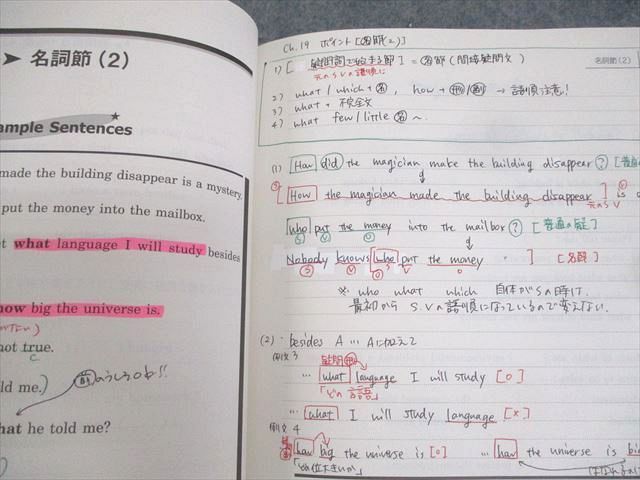 ➤ 名詞節(2)
ample Sentences
made the building disappear is a mystery.
put the money into the mailbox.
t what language I will study besides
how big the universe is.
not true.
C
ld me.)
hat he told me?
Ch.19 ポイント[名詞節(2)]
名詞節(2)
1) [疑問詞で始まる節] = 名詞節(間接疑問文)
元のSVの語順に
2) what / which + 名, how + 形/副 → 語順注意!
3) what + 不完全文
4) what few / little 名 ~.
(1) [How] did the magician make the building disappear ? [普通の
[How the magician made the building disappear] is a
元のSV
who put the money into the mailbox ? [普通の疑]
S V O
Nobody knows who put the money . [名節]
S V O S V O
※ who what which 自体がSの時は,
最初からS.Vの語順になっているので変えない.
(2) ・besides A … Aに加えて
例文3
疑問形
… what language I will study [○]
「どの言語」
… what I will study language [×]
例文4
how big the universe is [○]
… how the universe is bi
「どの位大きいか」